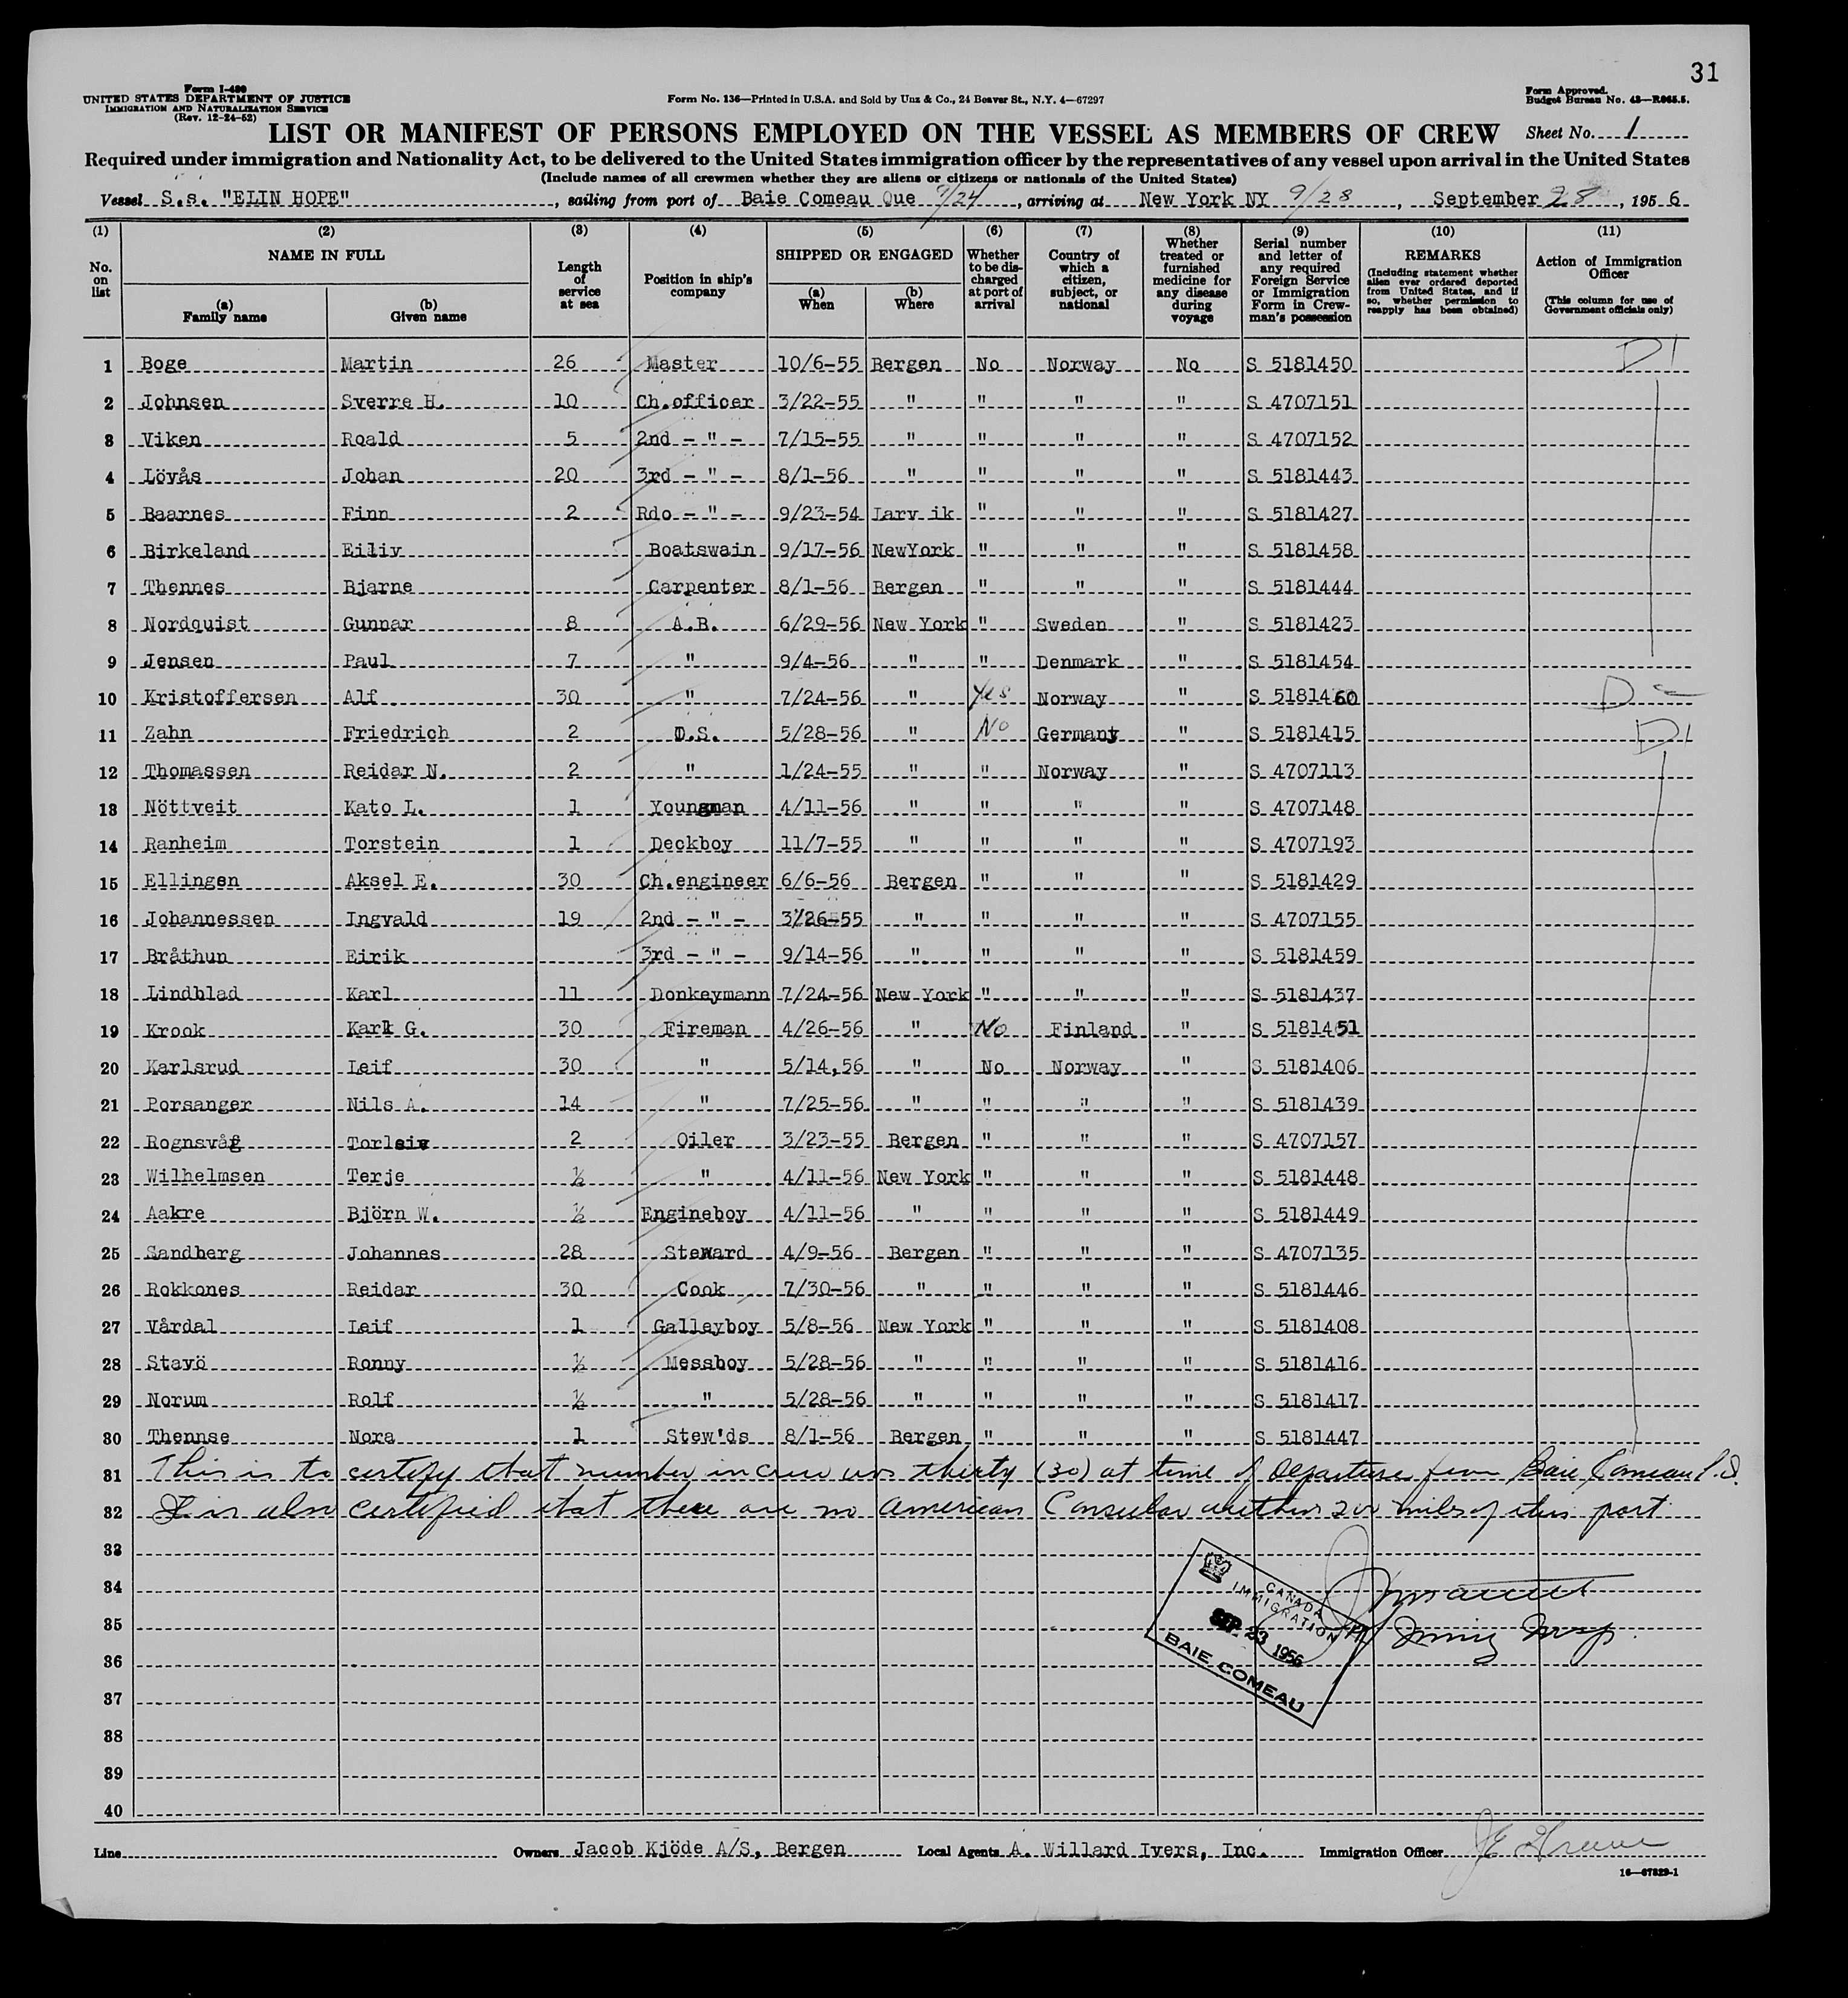 31
Form I-480
UNITED STATES DEPARTMENT OF JUSTICE
IMMIGRATION AND NATURALIZATION SERVICE
(Rev. 12-24-52)
Form No. 136—Printed in U.S.A. and Sold by Unz & Co., 24 Beaver St., N.Y. 4—67297
Form Approved.
Budget Bureau No. 43—R065.5.
LIST OR MANIFEST OF PERSONS EMPLOYED ON THE VESSEL AS MEMBERS OF CREW Sheet No. 1
Required under immigration and Nationality Act, to be delivered to the United States immigration officer by the representatives of any vessel upon arrival in the United States
(Include names of all crewmen whether they are aliens or citizens or nationals of the United States)
Vessel S.s. "ELIN HOPE", sailing from port of Baie Comeau Que 9/24, arriving at New York NY 9/28, September 28, 1956
(1) (2) (3) (4) (5) (6) (7) (8) (9) (10) (11)
No. on list
NAME IN FULL
(a) Family name
(b) Given name
Length of service at sea
Position in ship's company
SHIPPED OR ENGAGED
(a) When
(b) Where
Whether to be discharged at port of arrival
Country of which a citizen, subject, or national
Whether treated or furnished medicine for any disease during voyage
Serial number and letter of any required Foreign Service or Immigration Form in Crewman's possession
REMARKS
(Including statement whether alien ever ordered deported from United States, and if so, whether permission to reapply has been obtained)
Action of Immigration Officer
(This column for use of Government officials only)
1 Boge Martin 26 Master 10/6-55 Bergen No Norway No S 5181450 D1
2 Johnsen Sverre H. 10 Ch.officer 3/22-55 " " " " S 4707151
3 Viken Roald 5 2nd - " - 7/15-55 " " " " S 4707152
4 Lövås Johan 20 3rd - " - 8/1-56 " " " " S 5181443
5 Baarnes Finn 2 Rdo - " - 9/23-54 Larv ik " " " S 5181427
6 Birkeland Eiliv Boatswain 9/17-56 NewYork " " " S 5181458
7 Thennes Bjarne Carpenter 8/1-56 Bergen " " " S 5181444
8 Nordquist Gunnar 8 A.B. 6/29-56 New York " Sweden " S 5181423
9 Jensen Paul 7 " 9/4-56 " " Denmark " S 5181454
10 Kristoffersen Alf 30 " 7/24-56 " Yes Norway " S 5181460
11 Zahn Friedrich 2 O.S. 5/28-56 " No Germany " S 5181415 D1
12 Thomassen Reidar N. 2 " 1/24-55 " " Norway " S 4707113
13 Nöttveit Kato L. 1 Youngman 4/11-56 " " " " S 4707148
14 Ranheim Torstein 1 Deckboy 11/7-55 " " " " S 4707193
15 Ellingsen Aksel E. 30 Ch.engineer 6/6-56 Bergen " " " S 5181429
16 Johannessen Ingvald 19 2nd - " - 3/26-55 " " " " S 4707155
17 Bråthun Eirik 3rd - " - 9/14-56 " " " " S 5181459
18 Lindblad Karl 11 Donkeymann 7/24-56 New York " " " S 5181437
19 Krook Karl G. 30 Fireman 4/26-56 " No Finland " S 5181451
20 Karlsrud Leif 30 " 5/14,56 " No Norway " S 5181406
21 Porsanger Nils A. 14 " 7/25-56 " " " " S 5181439
22 Rognsvåg Torleiv 2 Oiler 3/23-55 Bergen " " " S 4707157
23 Wilhelmsen Terje ½ " 4/11-56 New York " " " S 5181448
24 Aakre Björn W. ½ Engineboy 4/11-56 " " " " S 5181449
25 Sandberg Johannes 28 Steward 4/9-56 Bergen " " " S 4707135
26 Rokkones Reidar 30 Cook 7/30-56 " " " " S 5181446
27 Vårdal Leif 1 Galleyboy 5/8-56 New York " " " S 5181408
28 Stavö Ronny ½ Messboy 5/28-56 " " " " S 5181416
29 Norum Rolf ½ " 5/28-56 " " " " S 5181417
30 Thennse Nora 1 Stew'ds 8/1-56 Bergen " " " S 5181447
31 This is to certify that number in crew was thirty (30) at time of departure from Baie Comeau P.Q.
32 It is also certified that there are no American Consular within 200 miles of this port
33
34
35
36
37
38
39
40
CANADA
IMMIGRATION
SEP 23 1956
BAIE COMEAU
Line Owners Jacob Kjöde A/S, Bergen Local Agents A. Willard Ivers, Inc. Immigration Officer
16—67829-1